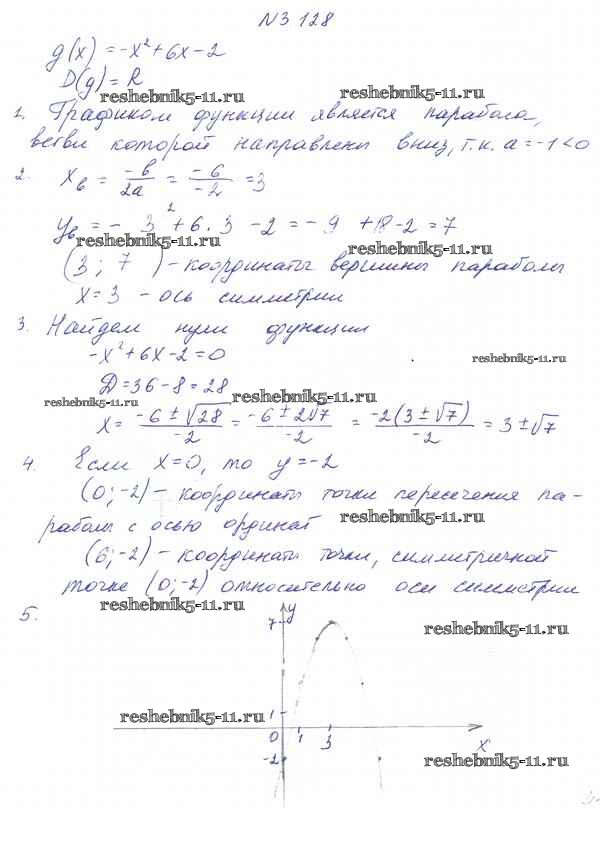 N3 128
g(x) = -x² + 6x - 2
D(g) = R
reshebnik5-11.ru reshebnik5-11.ru
1. Графиком функции является парабола,
ветви которой направлены вниз, т.к. a = -1 < 0
2. xв = -b/2a = -6/-2 = 3
yв = -3² + 6·3 - 2 = -9 + 18 - 2 = 7
reshebnik5-11.ru reshebnik5-11.ru
(3; 7) - координаты вершины параболы
x = 3 - ось симметрии
3. Найдем нули функции
-x² + 6x - 2 = 0 reshebnik5-11.ru
Д = 36 - 8 = 28
reshebnik5-11.ru reshebnik5-11.ru
x = -6 ± √28/-2 = -6 ± 2√7/-2 = -2(3 ± √7)/-2 = 3 ± √7
4. Если x = 0, то y = -2
(0; -2) - координаты точки пересечения па-
раболы с осью ординат reshebnik5-11.ru
(6; -2) - координаты точки, симметричной
точке (0; -2) относительно оси симметрии
5. reshebnik5-11.ru
y
7
reshebnik5-11.ru
reshebnik5-11.ru 1
0 1 3 x
-2 reshebnik5-11.ru